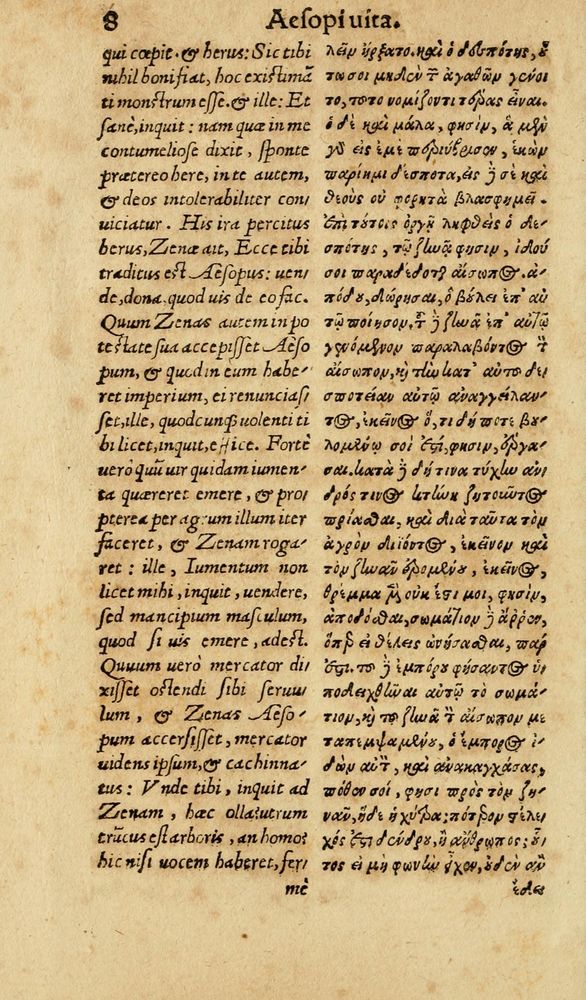 8 Aesopi uita.
qui cœpit. & herus: Sic tibi
nihil boni fiat, hoc existimã
ti monstrum esse. & ille: Et
sanè, inquit: nam quæ in me
contumeliose dixit, sponte
prætereo here, in te autem,
& deos intolerabiliter con/
uiciatur. His ira percitus
herus, Zenæ ait, Ecce tibi
traditus est Aesopus: uen/
de, dona, quod uis de eo fac.
Quum Zenas autem in po
testate sua accepisset Aeso
pum, & quod in eum habe/
ret imperium, ei renunciasi
set, ille, quodcunq; uolenti ti
bi licet, inquit, effice. Fortè
uero quũ uir quidam iumen/
ta quæreret emere, & pro/
pterea per agrum illum iter
faceret, & Zenam roga/
ret: ille, Iumentum non
licet mihi, inquit, uendere,
sed mancipium masculum,
quod si uis emere, adest.
Quum uerò mercator di/
xisset ostendi sibi seruu/
lum, & Zenas Aeso/
pum accersisset, mercator
uidens ipsum, & cachinna/
tus: Vnde tibi, inquit ad
Zenam, hæc olla? utrum
trũcus est arboris, an homo?
hic nisi uocem haberet, fer/
mè
λεῖν ἤρξατο. καὶ ὁ δεσπότης, ὅ
τω σοι μηδὲν τ ἀγαθῶν γένοι
το, τοῦτο νομίζοντι τέρας εἶναι.
ὁ δὲ καὶ μάλα, φησὶν, ἃ μὲν
γδ εἰς ἐμὲ παρύβρισεν, ἑκὼν
παρίημι δέσποτα, εἰς ἢ σὲ καὶ
θεοὺς οὐ φορητὰ βλασφημεῖ.
ἐπὶ τούτοις ὀργῇ ληφθεὶς ὁ δε-
σπότης, τῷ ζηνᾷ φησιν, ἰδού
σοι παραδέδοται αἴσωπος. ἀ-
πόδου, δώρησαι, ὃ βούλει ἐπ' αὐ
τῷ ποίησον. τ ἢ ζηνᾶ ἐπ' αὐτῷ
γενόμενον παραλαβόντος τ
αἴσωπον, κὴ τὴν κατ' αὐτοῦ δε/
σποτείαν αὐτῷ ἀναγγείλαν-
τος, ἐκεῖνος ὅ, τι δήποτε βου-
λομένῳ σοί ἐστι, φησιν, ἔργα-
σαι. κατὰ ἢ δή τινα τύχην ἀν/
δρός τινος κτήνη ζητοῦντος
πρίασθαι, καὶ διὰ ταῦτα τὸν
ἀγρὸν διϊόντος, ἐκεῖνον καὶ
τὸν ζηνᾶν ἐρομένου, ἐκεῖνος,
θρέμμα μὲν οὐκ ἔστι μοι, φησὶν,
ἀποδόσθαι, σωμάτιον ἢ ἄρρεν,
ὅπερ εἰ θέλεις ὠνήσασθαι, πάρ
ἐστι. τοῦ ἢ ἐμπόρου φήσαντος ὑ/
ποδειχθῆναι αὐτῷ τὸ σωμά-
τιον, κὴ τοῦ ζηνᾶ τ αἴσωπον με
ταπεμψαμένου, ὁ ἔμπορος ἰ-
δὼν αὐτ, καὶ ἀνακαγχάσας,
πόθεν σοι, φησι πρὸς τὸν ζη-
νᾶν, ἥδε ἡ χύτρα; πότερον στέλε
χός ἐστι δένδρου, ἢ ἄνθρωπος; οὗ
τος εἰ μὴ φωνὴν εἶχεν, οὐδὲν ἂν
ἔδει